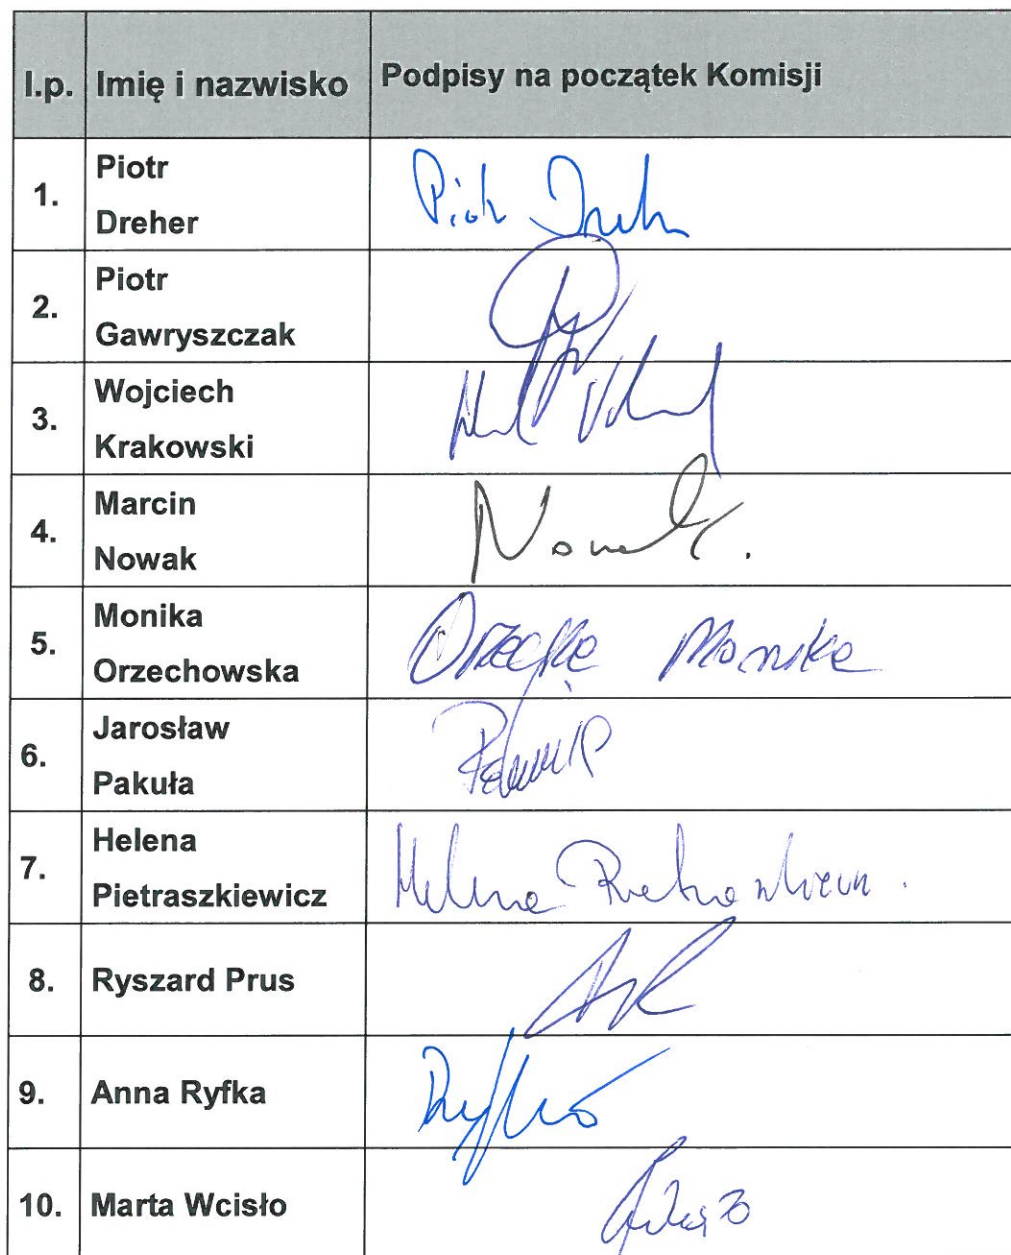 l.p. Imię i nazwisko Podpisy na początek Komisji
1. Piotr
Dreher
Piotr
2. Piotr
Gawryszczak
3. Wojciech
Krakowski
4. Marcin
Nowak
Nowak.
5. Monika
Orzechowska
Monika
6. Jarosław
Pakuła
7. Helena
Pietraszkiewicz
Helena
8. Ryszard Prus
9. Anna Ryfka
10. Marta Wcisło